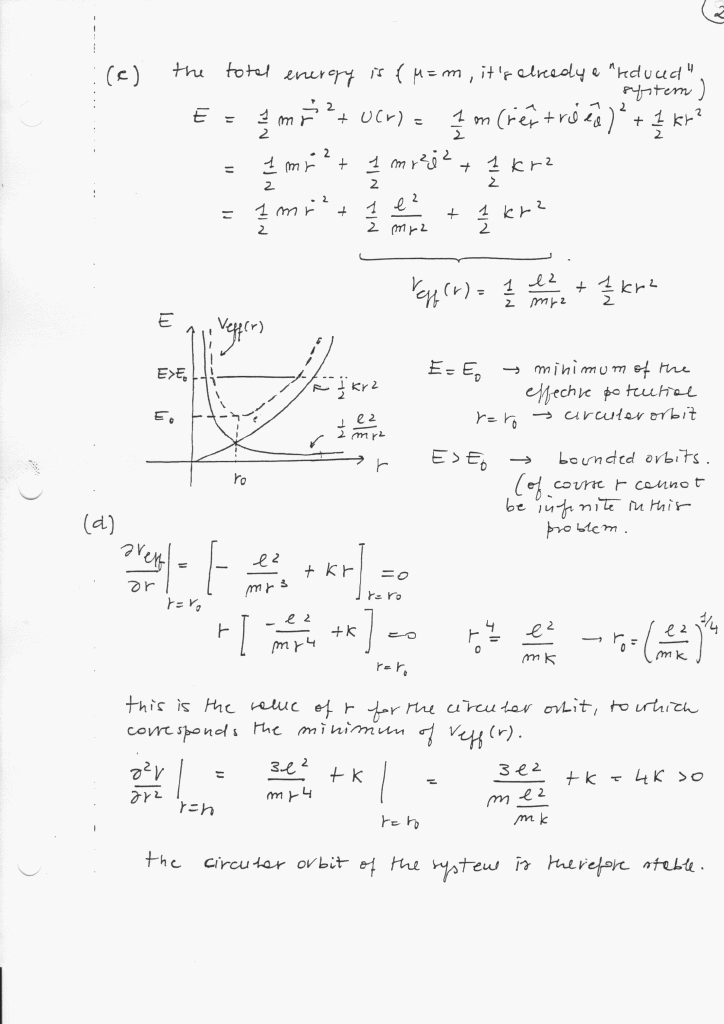 2
(c) the total energy is { μ = m, it's already a "reduced" system )
E = 1/2 m ṙ⃗² + U(r) = 1/2 m (ṙ ê_r + r θ̇ ê_θ)² + 1/2 kr²
= 1/2 m ṙ² + 1/2 m r² θ̇² + 1/2 k r²
= 1/2 m ṙ² + 1/2 ℓ²/mr² + 1/2 k r²
V_eff (r) = 1/2 ℓ²/mr² + 1/2 k r²
E
V_eff(r)
E>E₀
E₀
1/2 k r²
1/2 ℓ²/mr²
r
r₀
E = E₀ → minimum of the
effective potential
r = r₀ → circular orbit
E > E₀ → bounded orbits.
(of course r cannot
be infinite in this
problem.
(d)
∂V_eff/∂r |_{r=r₀} = [ - ℓ²/mr³ + kr ]_{r=r₀} = 0
r [ -ℓ²/mr⁴ + k ]_{r=r₀} = 0 r₀⁴ = ℓ²/mk → r₀ = (ℓ²/mk)^{1/4}
this is the value of r for the circular orbit, to which
corresponds the minimum of V_eff (r).
∂²V/∂r² |_{r=r₀} = 3ℓ²/mr⁴ + k |_{r=r₀} = 3ℓ²/(m ℓ²/mk) + k = 4k >0
the circular orbit of the system is therefore stable.